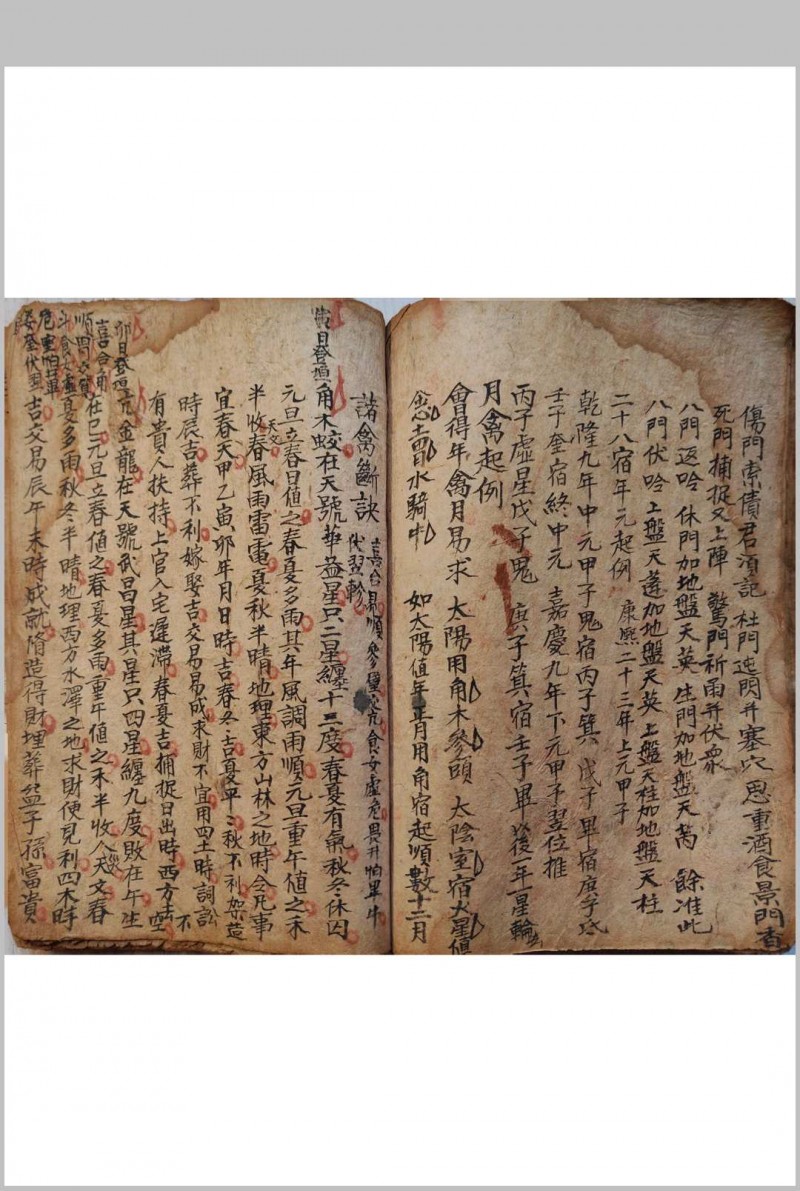 傷門索債君須記 杜門逃閃并塞穴 思重酒食景門查
死門捕捉又上陣 驚門祈雨并伏衆
八門返吟 休門加地盤天英 生門加地盤天芮 餘准此
八門伏吟 上盤天蓬加地盤天英 上盤天柱加地盤天柱
二十八宿年元起例 康熙二十三年上元甲子
乾隆九年中元甲子鬼宿丙子箕 戊子畢宿庚子氐
壬子奎宿終中元 嘉慶九年下元甲子翌位推
丙子虛星戊子鬼 庚子箕宿壬子畢 以後一年一星輪
月禽起例
會得年禽月易求 太陽用角木參頭 太陰室宿火星值
金土胃水騎牛 如太陽值年正月用角宿起順數十二月
諸禽斷訣 喜合見順 食女虛危畏井怕畢牛
伏翌軫
日登垣 角木蛟在天號華蓋星只二星纏十三度春夏有氣秋冬休囚
元旦立春日值之春夏多雨其年風調雨順元旦重午值之禾
半收天文春風雨雷電夏秋半晴地理東方山林之地時令凡事
宜春天甲乙寅卯年月日時吉春冬吉夏平二秋不利架造
時辰吉葬不利嫁娶吉交易易成求財不宜用四土時詞訟
有貴人扶持上官入宅遲滯春夏吉捕捉日出時西方去不空
卯日登垣 亢金龍在天號武昌星其星只四星纏九度敗在午生
喜合角
在巳元旦立春值之春夏多雨重午值之禾半收天文春
夏多雨秋冬半晴地理西方水澤之地求財便見利四木時
危室怕畢
婁奎伏
吉交易辰午未時成就脩造得財埋葬益子孫富貴